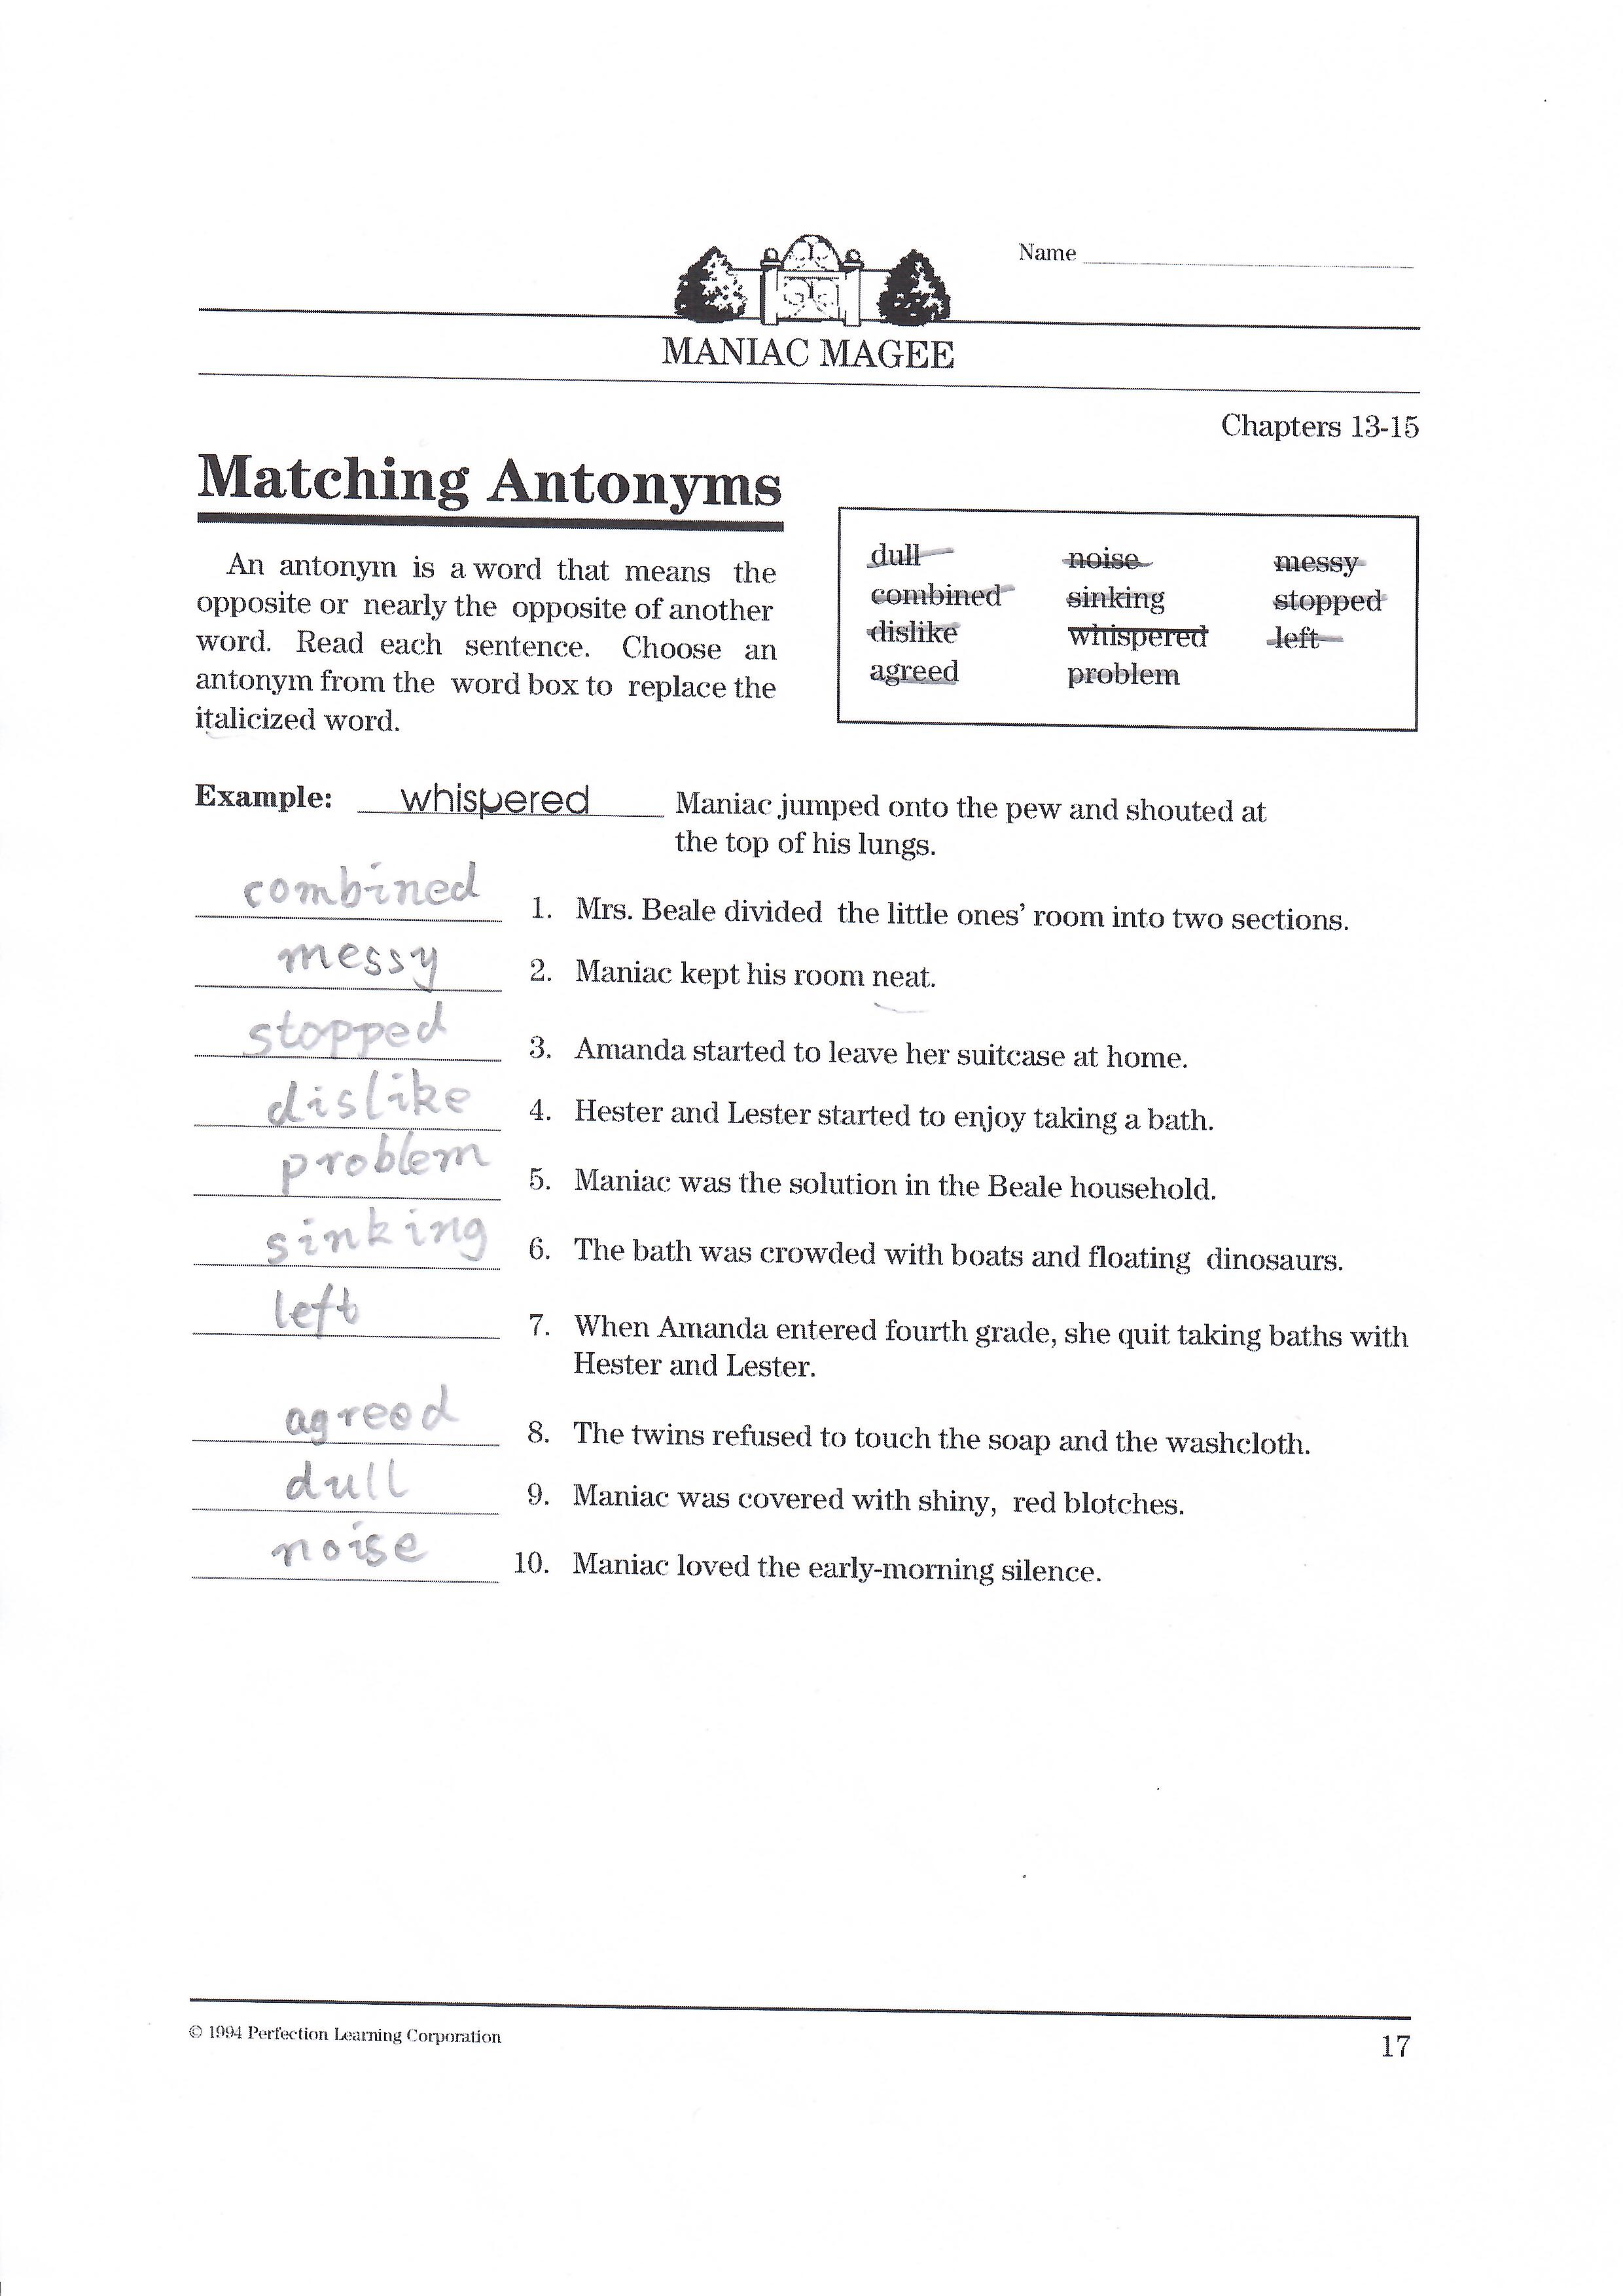 Name
MANIAC MAGEE
Chapters 13-15
Matching Antonyms
An antonym is a word that means the
opposite or nearly the opposite of another
word. Read each sentence. Choose an
antonym from the word box to replace the
italicized word.
dull noise messy
combined sinking stopped
dislike whispered left
agreed problem
Example: whispered Maniac jumped onto the pew and shouted at
the top of his lungs.
combined 1. Mrs. Beale divided the little ones' room into two sections.
messy 2. Maniac kept his room neat.
stopped 3. Amanda started to leave her suitcase at home.
dislike 4. Hester and Lester started to enjoy taking a bath.
problem 5. Maniac was the solution in the Beale household.
sinking 6. The bath was crowded with boats and floating dinosaurs.
left 7. When Amanda entered fourth grade, she quit taking baths with
Hester and Lester.
agreed 8. The twins refused to touch the soap and the washcloth.
dull 9. Maniac was covered with shiny, red blotches.
noise 10. Maniac loved the early-morning silence.
© 1994 Perfection Learning Corporation
17